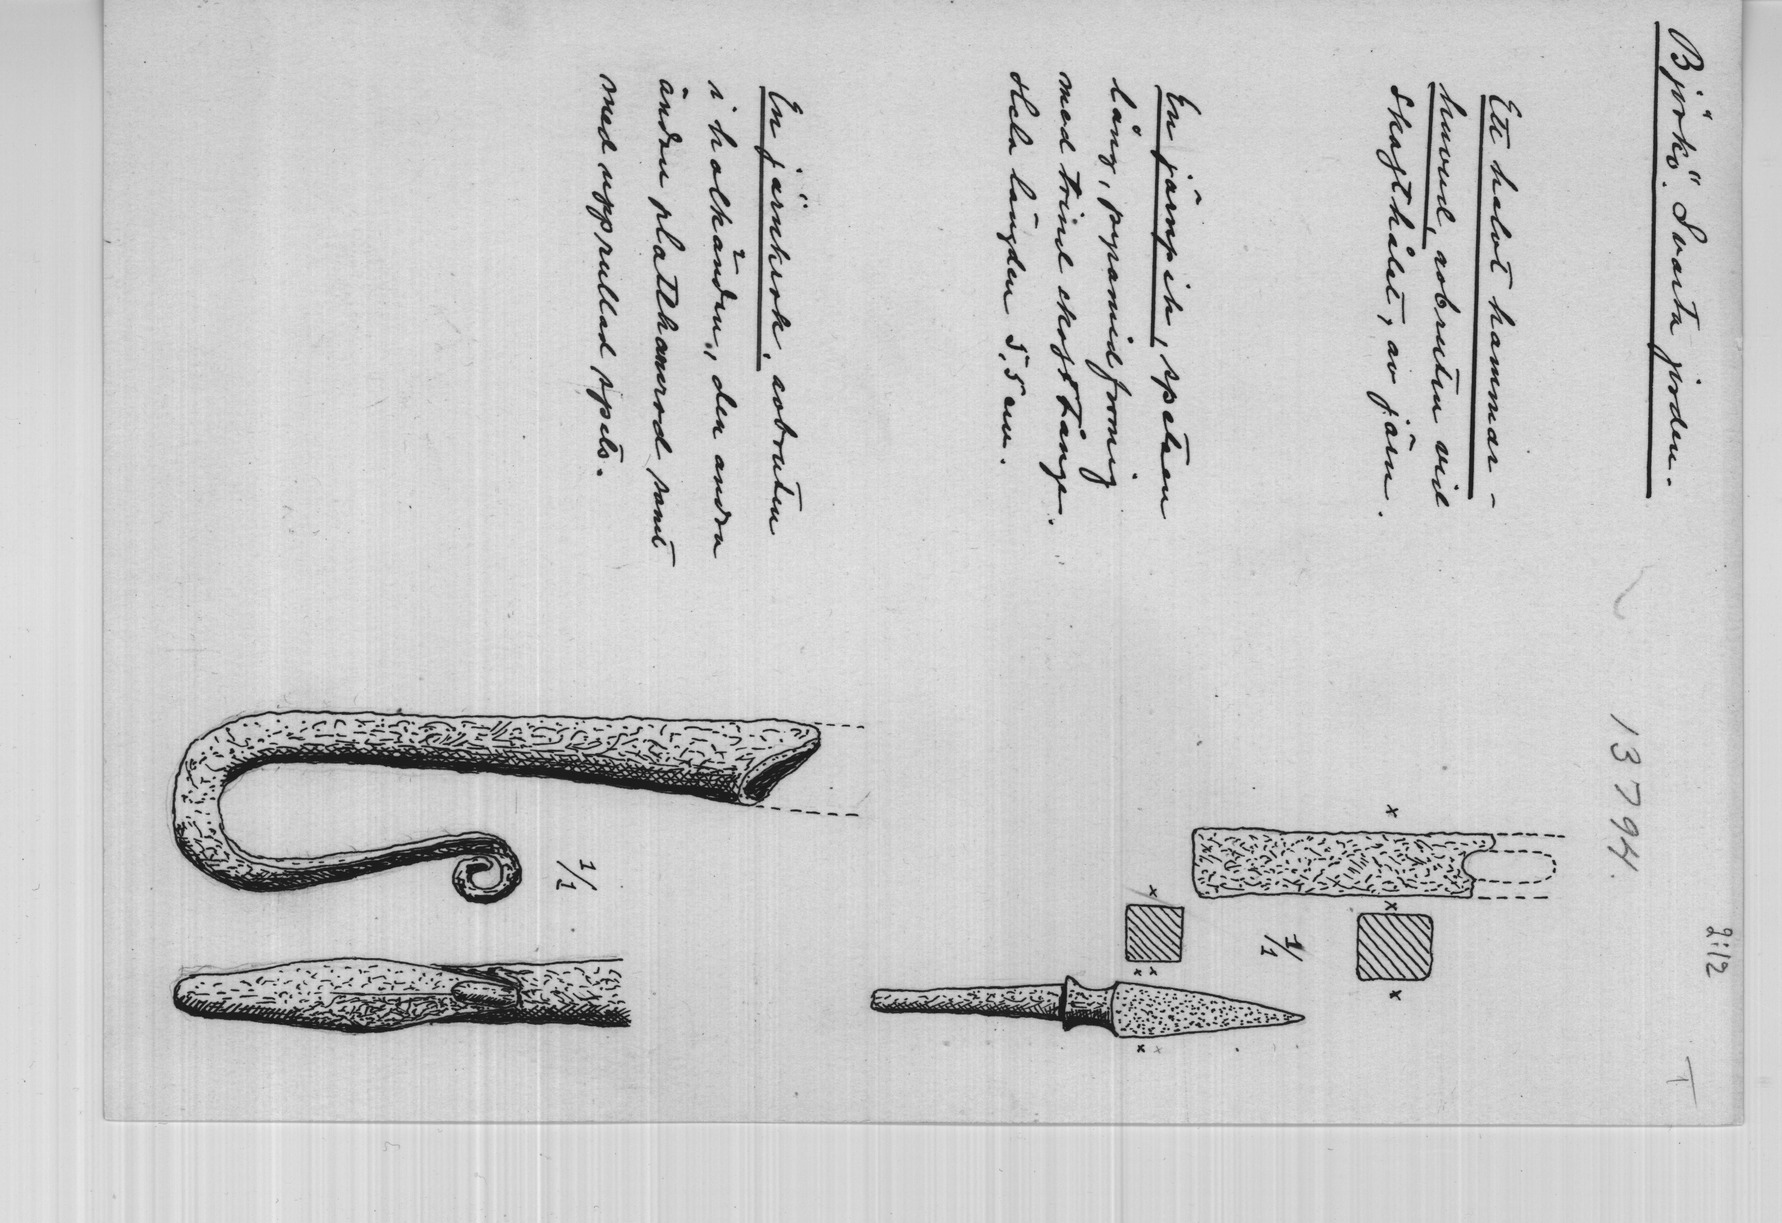 Björkö. Svarta jorden.
13794.
2:12
T
Ett halvt hammar-
huvud, avbrutin vid
skafthålet, av järn.
1/1
En järnpik, spetsen
lång, pyramidformig
med trind skafttånge.
Hela längden 5,5 cm.
En järnkrok, avbruten
i holkändan, den andra
ändan platthamrad samt
med upprullad spets.
1/1